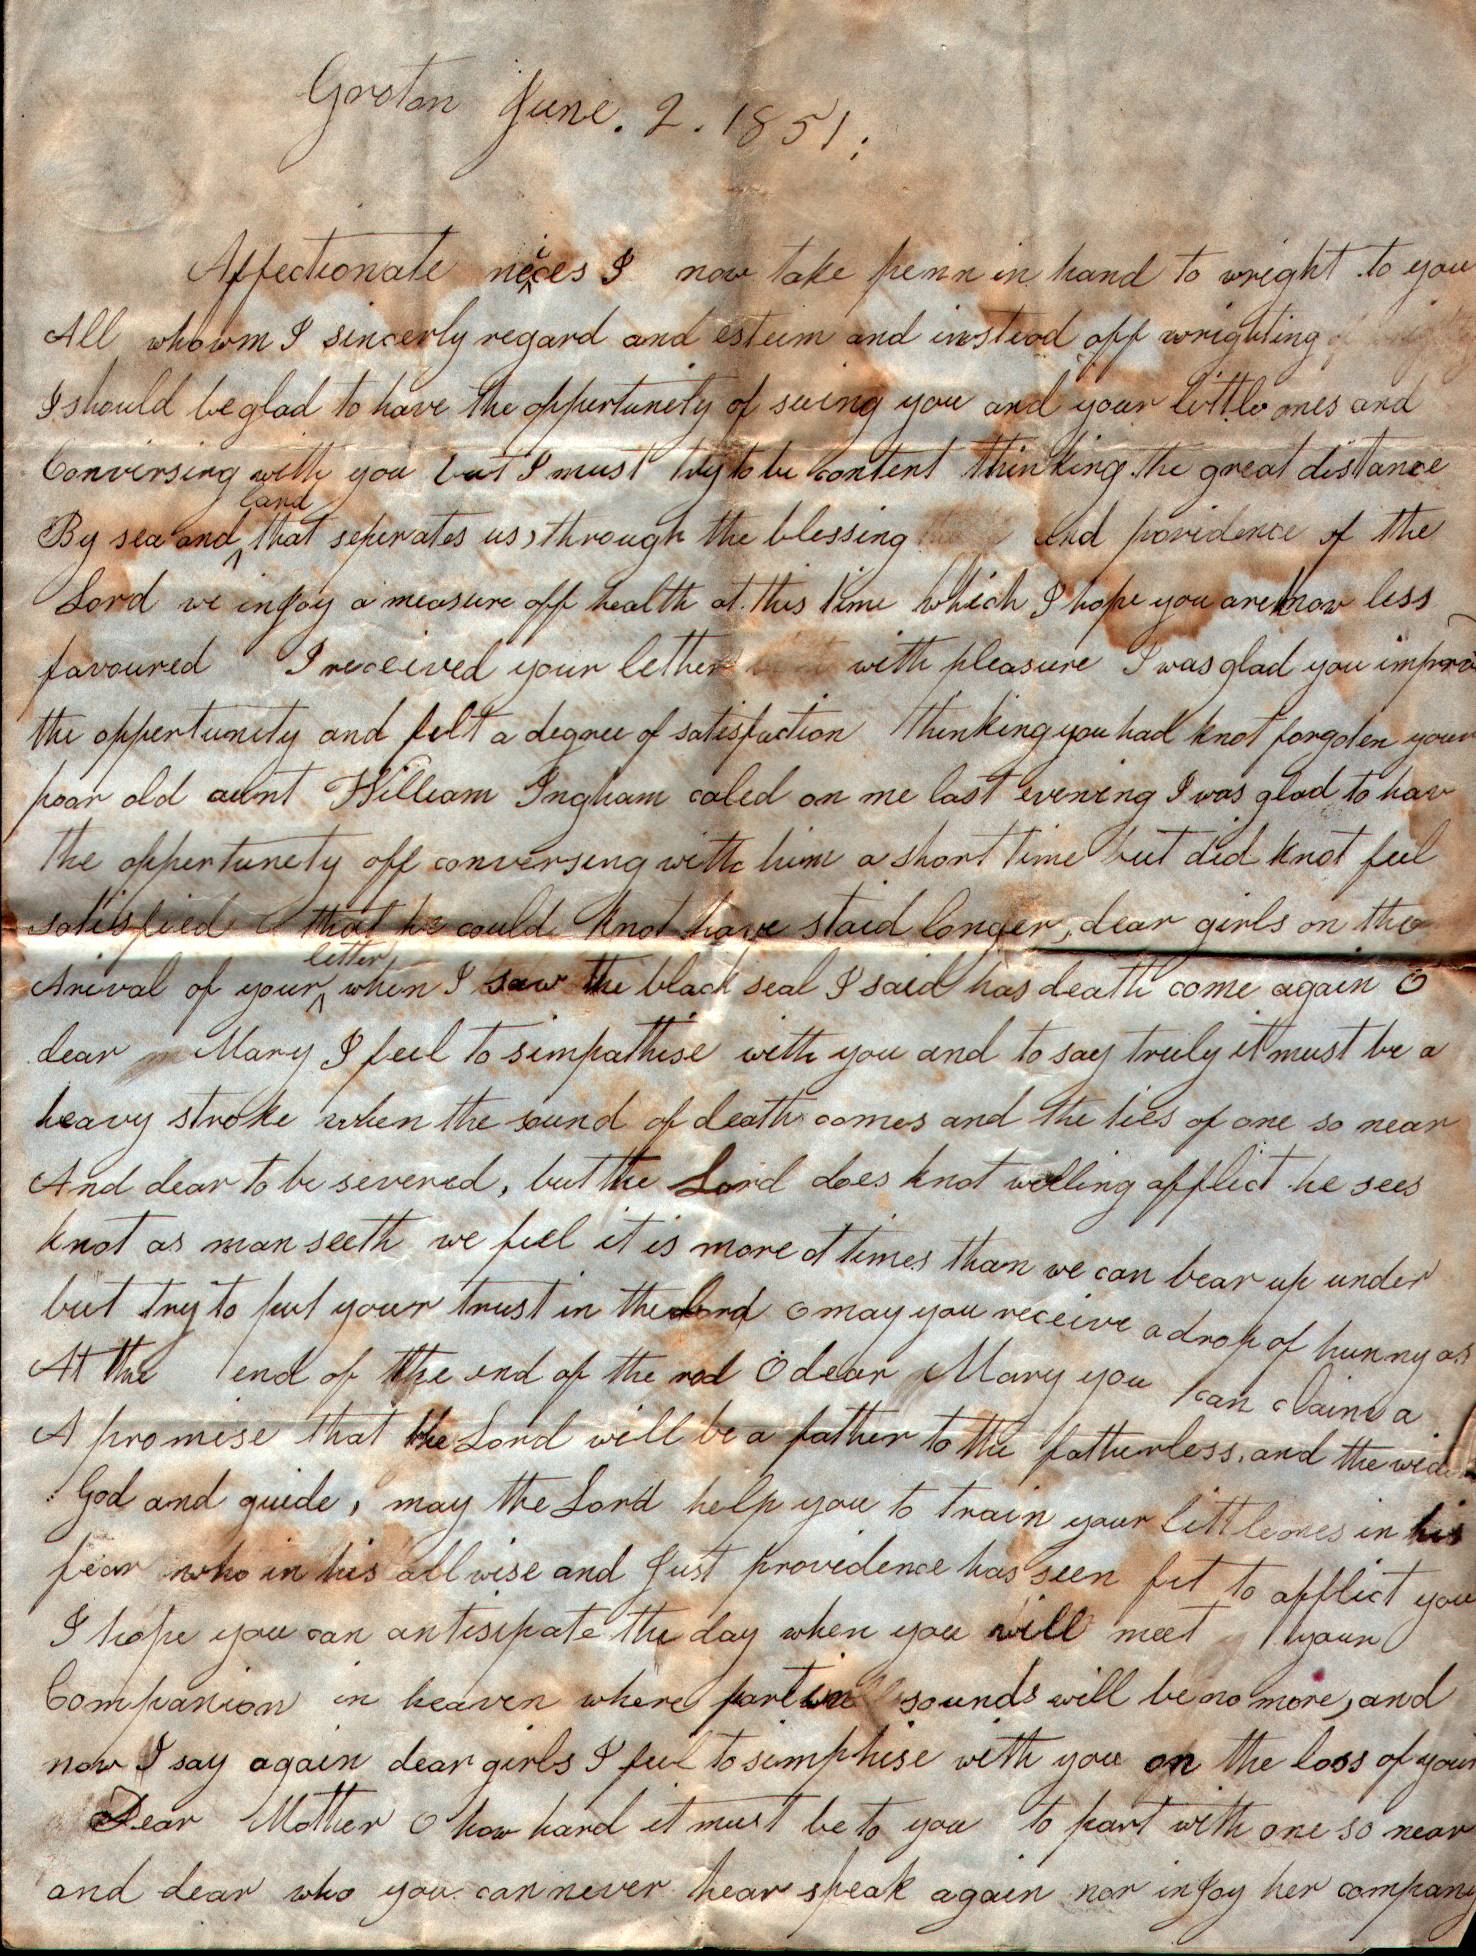 Groton June. 2. 1851;
Affectionate nices I now take penn in hand to wright to you
All whowm I sincerly regard and esteem and instead off wrighting
I should be glad to have the oppertunety of seeing you and your little ones and
Conversing with you but I must try to be content thinking the great distance
By sea and land that seperates us, through the blessing and providence of the
Lord we injoy a measure off health at this time which I hope you are now less
favoured I received your lether with pleasure I was glad you improv
the oppertunity and felt a degree of satisfaction thinking you had knot forgoten your
poor old aunt William Ingham caled on me last evening I was glad to hav
the oppertunety off conversing with him a short time but did knot feel
satisfied that he could knot have staid longer, dear girls on the
Arival of your letter, when I saw the black seal I said has death come again O
dear Mary I feel to simpathise with you and to say truly it must be a
heavy stroke when the sound of death comes and the ties of one so near
And dear to be severed, but the Lord does knot willing afflict he sees
knot as man seeth we feel it is more at times than we can bear up under
but try to put your trust in the Lord o may you receive a drop of hunny as
At the end of the end of the rod O dear Mary you can claim a
A promise that the Lord will be a father to the fatherless, and the wido
God and guide, may the Lord help you to train your little ones in his
fear who in his all wise and Just providence has seen fit to afflict you
I hope you can antisipate the day when you will meet your
Companion in heaven where partin sounds will be no more, and
now I say again dear girls I feel to simphise with you on the loss of your
Dear Mother O how hard it must be to you to part with one so near
and dear who you can never hear speak again nor injoy her company